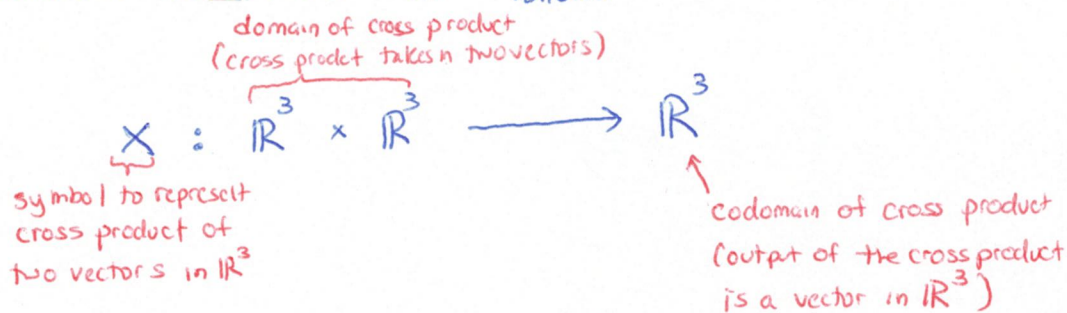 domain of cross product
(cross prodct takes n two vectors)
× : ℝ³ × ℝ³ ⟶ ℝ³
symbol to represelt
cross product of
two vectors in ℝ³
codomain of cross product
(outpt of the cross product
is a vector in ℝ³)